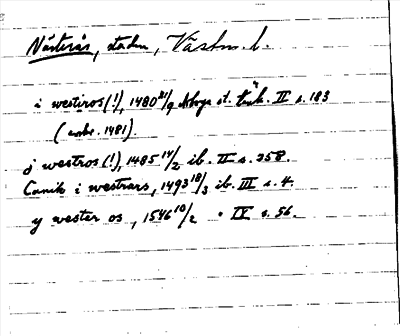 Västerås, staden, Västm. l.
i westiros (!), 1480 21/9 st. tänk. II s. 183
(1481).
j westros (!), 1485 14/2 ib. II s. 258.
Canik i westrars, 1493 18/3 ib. III s. 4.
y wester os, 1546 10/2 " IV s. 56.